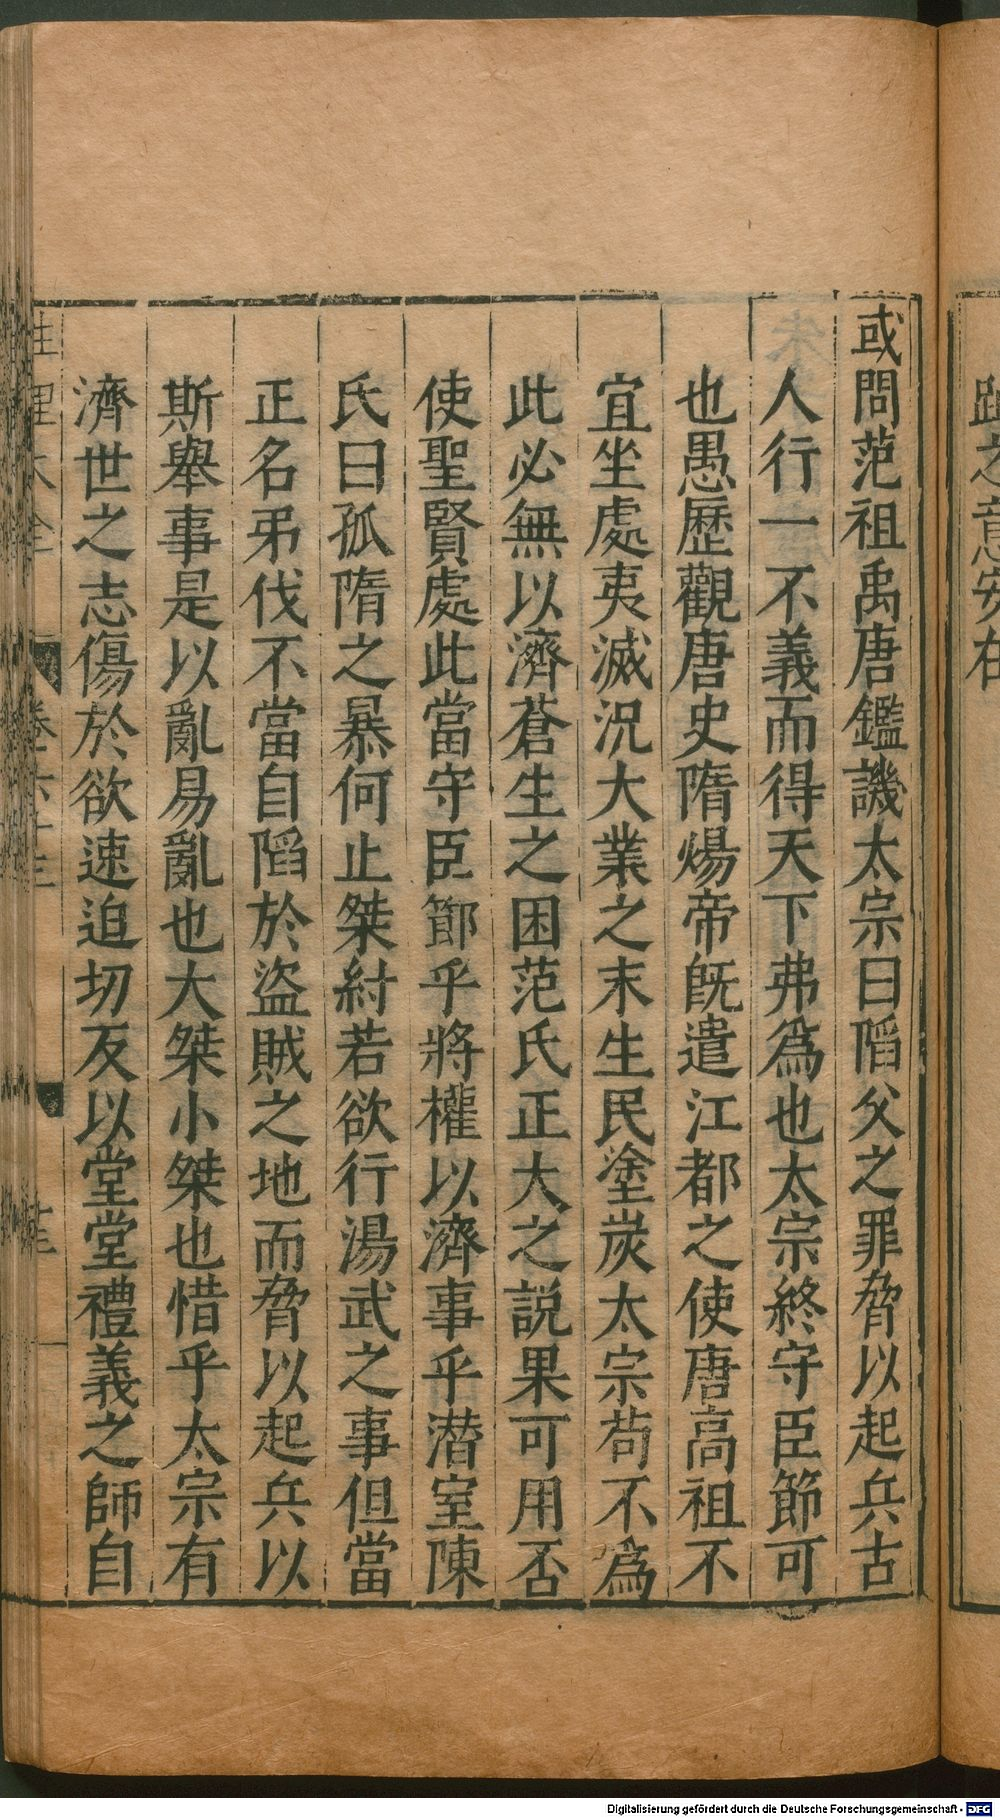 或問范祖禹唐鑑譏太宗曰陷父之罪脅以起兵古
人行一不義而得天下弗爲也太宗終守臣節可
也愚歷觀唐史隋煬帝旣遣江都之使唐高祖不
宜坐處夷滅況大業之末生民塗炭太宗茍不爲
此必無以濟蒼生之困范氏正大之說果可用否
使聖賢處此當守臣節乎將權以濟事乎潜室陳
氏曰孤隋之暴何止桀紂若欲行湯武之事但當
正名弔伐不當自陷於盜賊之地而脅以起兵以
斯舉事是以亂易亂也大桀小桀也惜乎太宗有
濟世之志傷於欲速迫切反以堂堂禮義之師自
性理大全 卷六十三 十三
之意安在
Digitalisierung gefördert durch die Deutsche Forschungsgemeinschaft - DFG